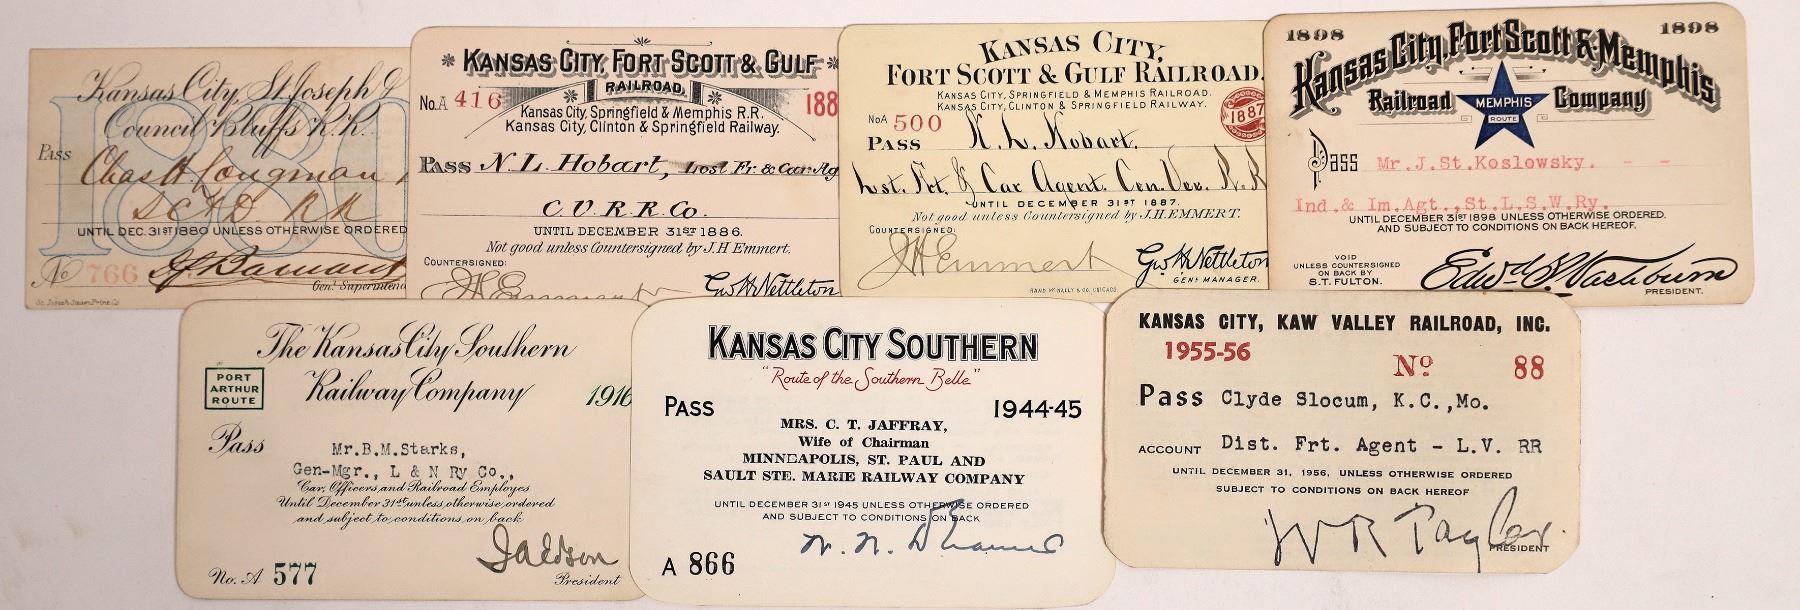 Kansas City, St. Joseph &
Council Bluffs R.R.
1880
PASS Chas H Longman
UNTIL DEC. 31ST 1880 UNLESS OTHERWISE ORDERED
No 766
Gen'l Superinten
KANSAS CITY, FORT SCOTT & GULF
RAILROAD,
No. A 416 188
Kansas City, Springfield & Memphis R.R.
Kansas City, Clinton & Springfield Railway.
PASS N. L. Hobart, Lost Fr. & Car Ag
C. V. R. R. Co.
UNTIL DECEMBER 31ST 1886.
Not good unless Countersigned by J.H Emmert.
COUNTERSIGNED:
JH Emmert Geo H Nettleton
KANSAS CITY,
FORT SCOTT & GULF RAILROAD,
KANSAS CITY, SPRINGFIELD & MEMPHIS RAILROAD.
KANSAS CITY, CLINTON & SPRINGFIELD RAILWAY.
No A 500 1887
PASS N. L. Hobart.
Lst. Frt. & Car Agent. Cen. Ver. R. R
UNTIL DECEMBER 31ST 1887.
Not good unless Countersigned by J.H. EMMERT.
COUNTERSIGNED:
JH Emmert Geo H Nettleton
GENL MANAGER.
RAND MCNALLY & CO. CHICAGO.
1898 1898
Kansas City, Fort Scott & Memphis
Railroad MEMPHIS Company
ROUTE
Pass Mr. J. St. Koslowsky. - -
Ind. & Im. Agt., St. L. S. W. Ry.
UNTIL DECEMBER 31ST 1898 UNLESS OTHERWISE ORDERED.
AND SUBJECT TO CONDITIONS ON BACK HEREOF.
VOID
UNLESS COUNTERSIGNED
ON BACK BY
S.T. FULTON.
Edwd S. Washburn
PRESIDENT.
The Kansas City Southern
Railway Company
PORT
ARTHUR
ROUTE
1916
Pass
Mr. B.M. Starks,
Gen-Mgr., L & N Ry Co.,
Car, Officers and Railroad Employes
Until December 31st unless otherwise ordered
and subject to conditions on back
J A Edson
President
No. A 577
KANSAS CITY SOUTHERN
"Route of the Southern Belle"
PASS 1944-45
MRS. C. T. JAFFRAY,
Wife of Chairman
MINNEAPOLIS, ST. PAUL AND
SAULT STE. MARIE RAILWAY COMPANY
UNTIL DECEMBER 31ST 1945 UNLESS OTHERWISE ORDERED
AND SUBJECT TO CONDITIONS ON BACK
A 866
KANSAS CITY, KAW VALLEY RAILROAD, INC.
1955-56 No 88
Pass Clyde Slocum, K.C.,Mo.
ACCOUNT Dist. Frt. Agent - L.V. RR
UNTIL DECEMBER 31, 1956, UNLESS OTHERWISE ORDERED
SUBJECT TO CONDITIONS ON BACK HEREOF
W R Taylor
PRESIDENT